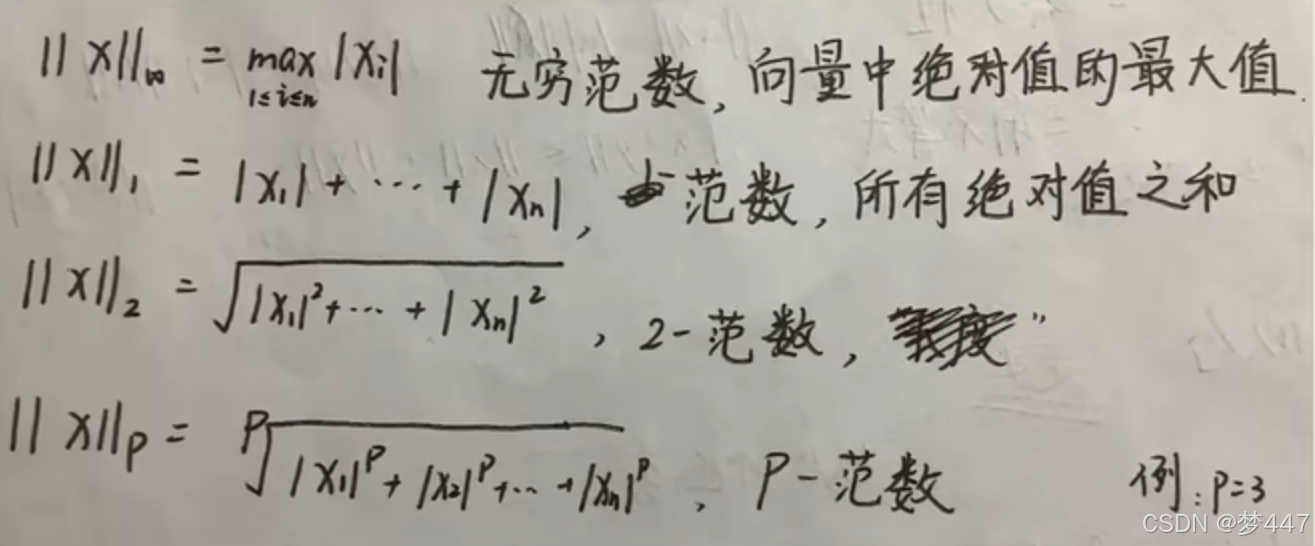 ||X||∞ = max |Xi| 无穷范数,向量中绝对值的最大值.
1≤i≤n
||X||₁ = |X₁| + ··· + |Xn|, 范数,所有绝对值之和
||X||₂ = √|X₁|² + ··· + |Xn|² , 2-范数,
||X||p = P√|X₁|^P + |X₂|^P + ··· + |Xn|^P , P-范数 例:P=3
CSDN @梦447